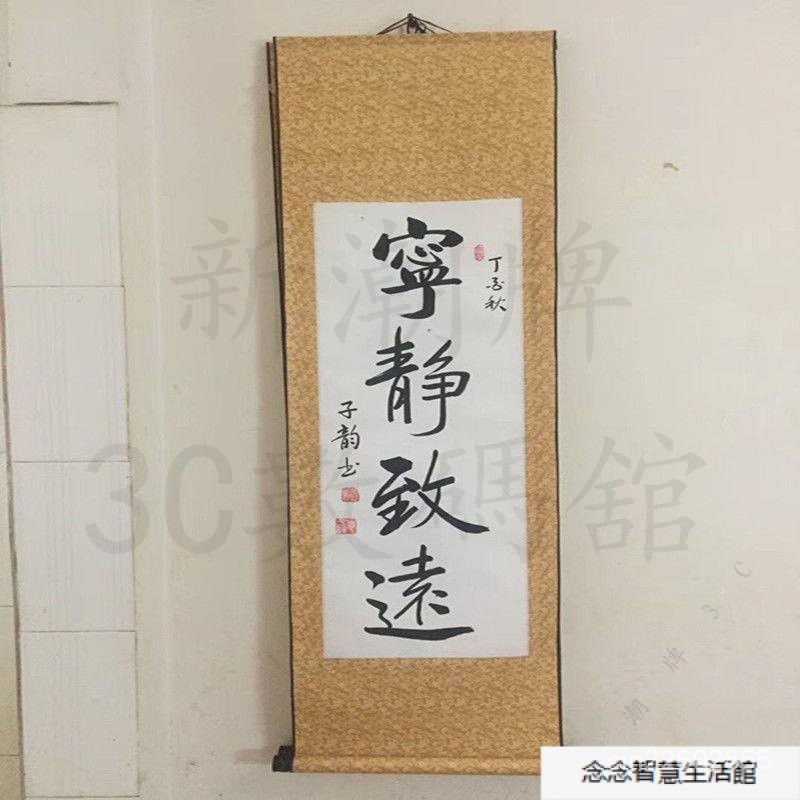 寧靜致遠
丁酉秋
子韵书
新潮牌
3C數碼舘
潮牌3C
念念智慧生活館